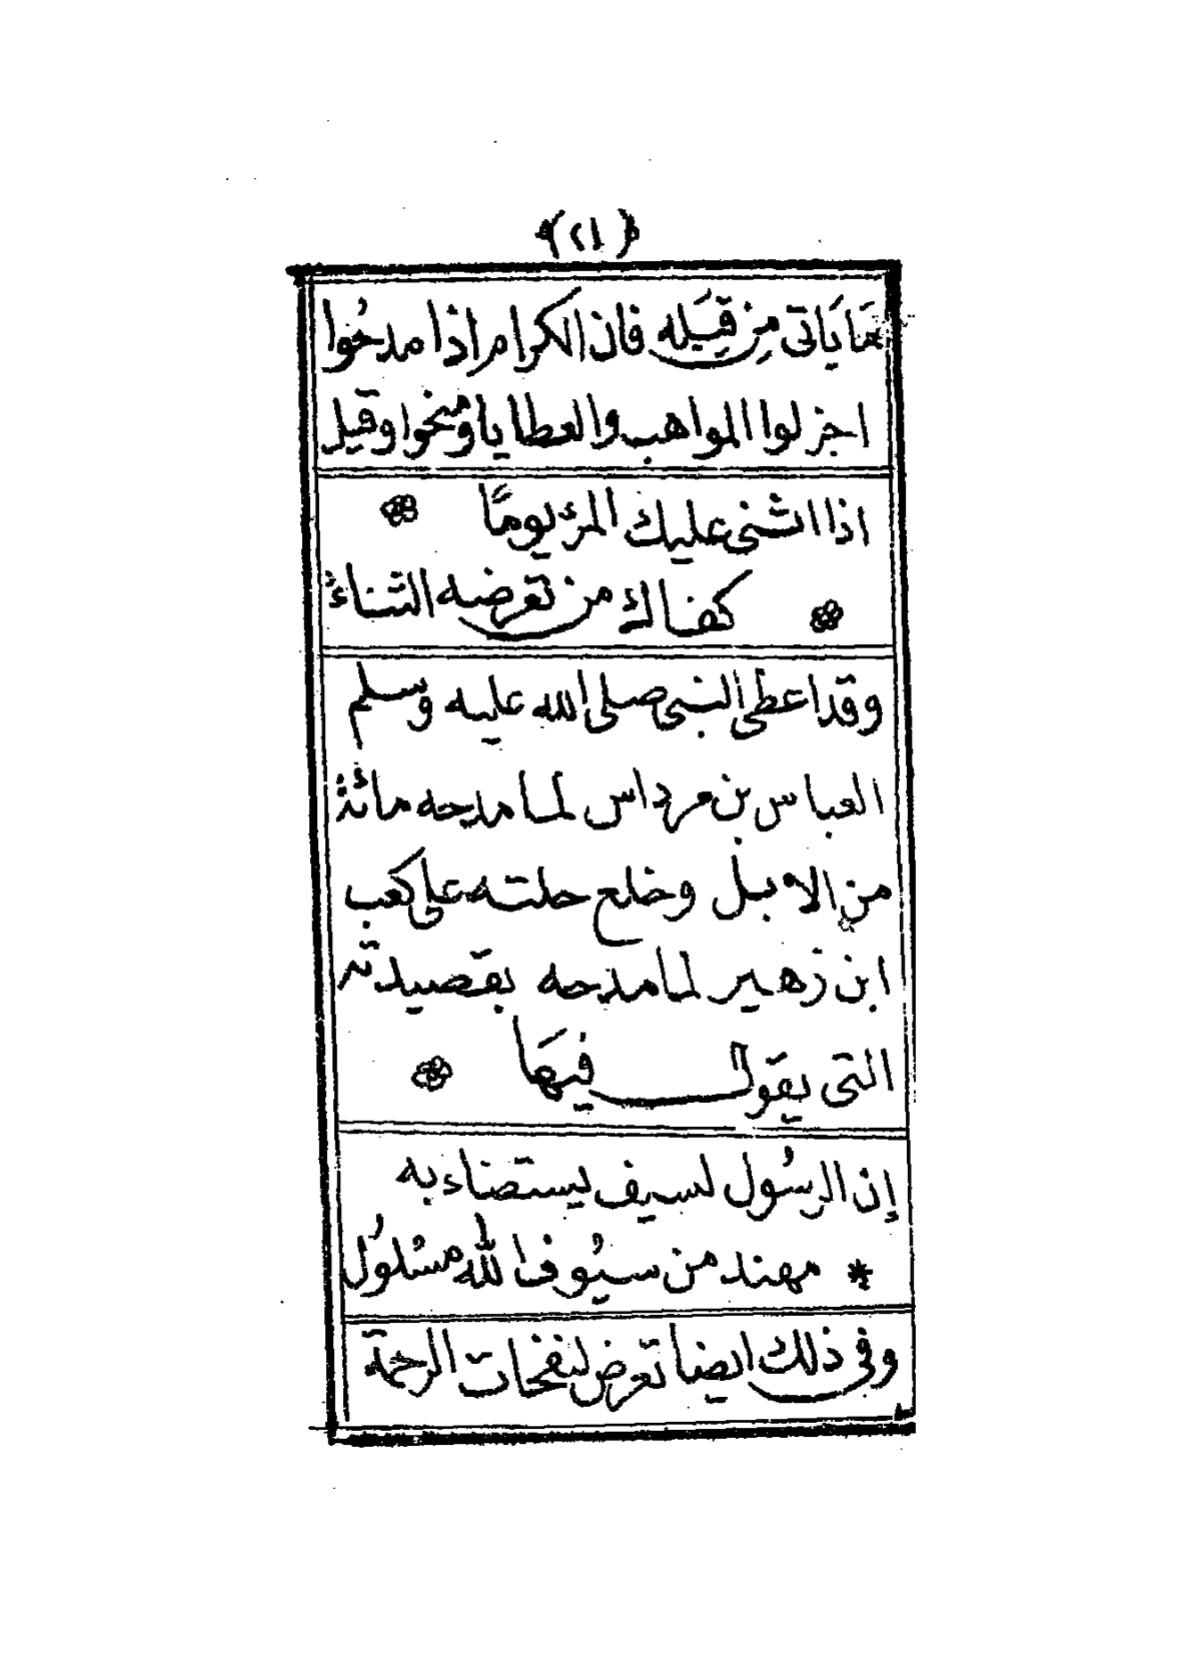 ﴿٢١﴾
مَا يَاتى مِن قِبَلِه فان الكرام اذا مدحُوا
اجزلوا المواهب والعطايا ومنحوا وقيل
اذا اثنى عليك المرئ يومًا
كفاك من تعرضه الثناءُ
وقد اعطى النبى صلى الله عليه وسلم
العباس بن مرداس لما مدحه مائة
من الابل وخلع حلته على كعب
ابن زهير لما مدحه بقصيدته
التى يقول فيهَا
إن الرسُول لسيف يستضاء به
* مهند من سيُوف الله مسْلُول
وفى ذلك ايضا تعرض لنفحات الرحمة